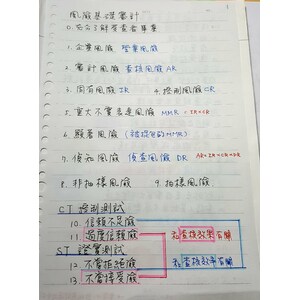 風險基礎審計
0. 充分了解受查者事業
1. 企業風險 營業風險
2. 審計風險 查核風險 AR
3. 固有風險 IR 4. 控制風險 CR
5. 重大不實表達風險 MMR = IR×CR
6. 顯著風險 (該提高的MMR)
7. 偵知風險 偵查風險 DR AR=IR×CR×DR
8. 非抽樣風險 9. 抽樣風險
CT 控制測試
10. 信賴不足險
11. 過度信賴險 和查核效果有關
ST 證實測試
12. 不當拒絕險 和查核效率有關
13. 不當接受險